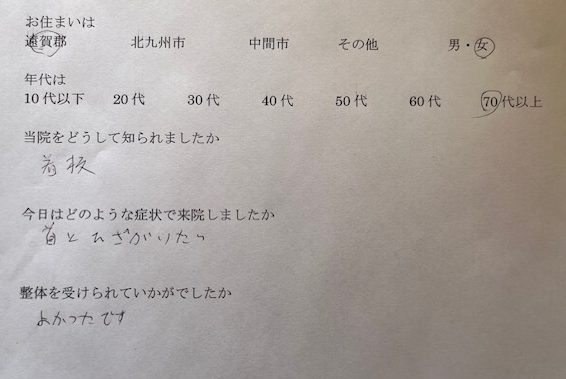 お住まいは
遠賀郡 北九州市 中間市 その他 男・女
年代は
10代以下 20代 30代 40代 50代 60代 70代以上
当院をどうして知られましたか
看板
今日はどのような症状で来院しましたか
首とひざがいたい
整体を受けられていかがでしたか
よかったです